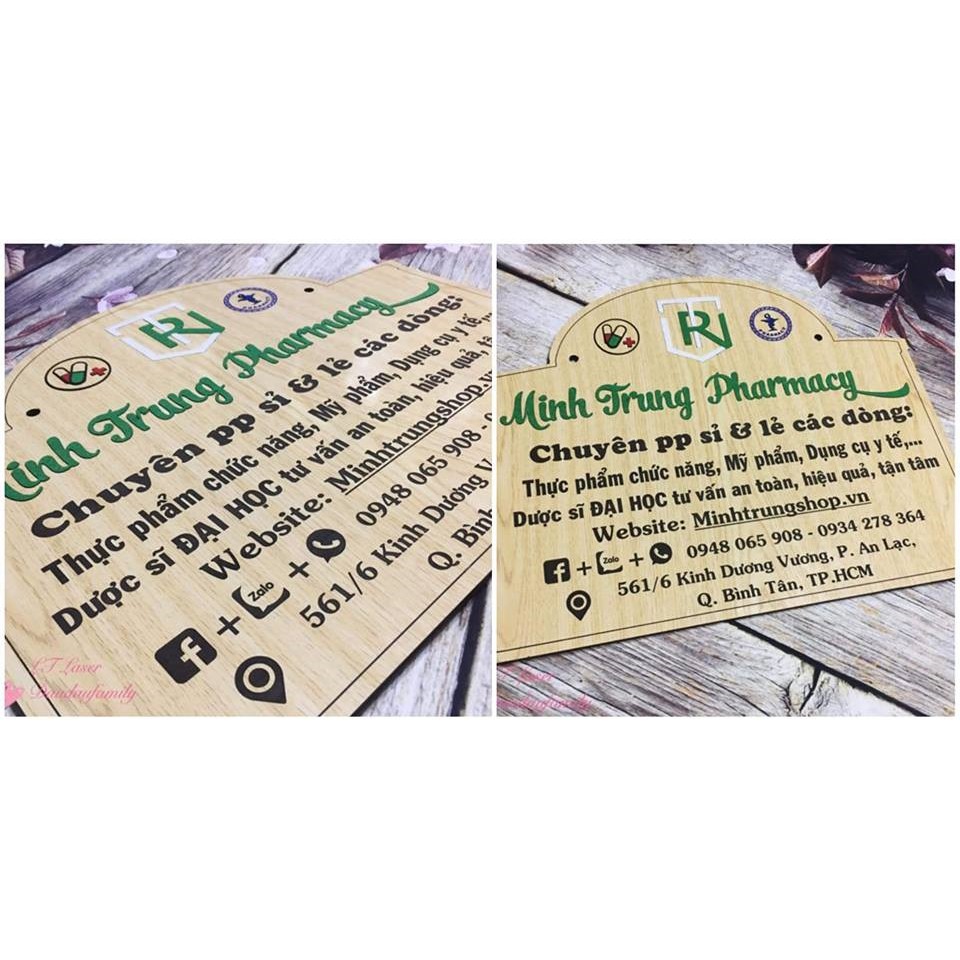 TRN
Minh Trung Pharmacy
Chuyên pp sỉ & lẻ các dòng:
Thực phẩm chức năng, Mỹ phẩm, Dụng cụ y tế,
Dược sĩ ĐẠI HỌC tư vấn an toàn, hiệu quả, tậ
Website: Minhtrungshop.v
f + Zalo + 0948 065 908 -
561/6 Kinh Dương V
Q. Bình
LT Laser
Daudayfamily
TRN
Minh Trung Pharmacy
Chuyên pp sỉ & lẻ các dòng:
Thực phẩm chức năng, Mỹ phẩm, Dụng cụ y tế,...
Dược sĩ ĐẠI HỌC tư vấn an toàn, hiệu quả, tận tâm
Website: Minhtrungshop.vn
f + Zalo + 0948 065 908 - 0934 278 364
561/6 Kinh Dương Vương, P. An Lạc,
Q. Bình Tân, TP.HCM
Laser